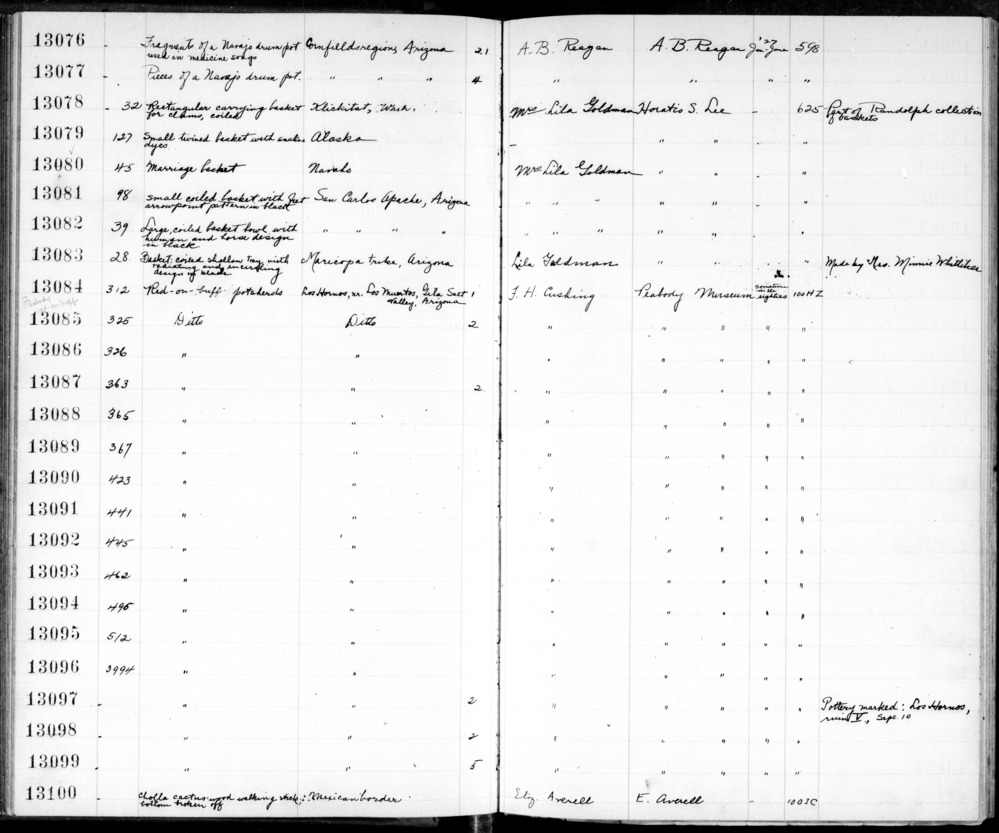 13076 - Fragments of a Navajo drum pot Cornfields region, Arizona 21 A. B. Reagan A. B. Reagan '27 Jan-June 598
used in medicine songs
13077 - Pieces of a Navajo drum pot. " " " 4 " " " "
13078 - 32 Rectangular carrying basket Klickitat, Wash. Mrs Lila Goldman Horatio S. Lee - 625 Part of Randolph collection
for clams, coiled of baskets
13079 127 Small twined basket with Alaska - " " - "
dyes.
13080 45 Marriage basket Navaho Mrs Lila Goldman " " - "
13081 98 Small coiled basket with feet San Carlos Apache, Arizona " " " " " - "
arrowpoint pattern in black
13082 39 Large, coiled basket bowl with " " " " " " " " " - "
human and horse design
in black
13083 28 Basket; coiled shallow tray, with Maricopa tribe, Arizona Lila Goldman " " " " Made by Mrs. Minnie
radiating and encircling
design of black
13084 312 Red-on-buff potsherds Los Hornos, nr. Los Muertos, Gila Salt 1 F. H. Cushing Peabody Museum sometime in the eighties 100HZ
Peabody Valley, Arizona
13085 325 Ditto Ditto 2 " " " " "
13086 326 " " " " " " "
13087 363 " " 2 " " " " "
13088 365 " " " " " " "
13089 367 " " " " " " "
13090 423 " " " " " " "
13091 441 " " " " " " "
13092 445 " " " " " " "
13093 462 " " " " " " "
13094 495 " " " " " " "
13095 512 " " " " " " "
13096 3994 " " " " " " "
13097 - " " 2 " " " " " Pottery marked: Los Hornos,
ruin V, Sept. 10
13098 - " " 2 " " " " "
13099 - " " 5 " " " " "
13100 - Cholla cactus wood walking stick; Mexican border Eliz. Averell E. Averell - 1003C
bottom broken off